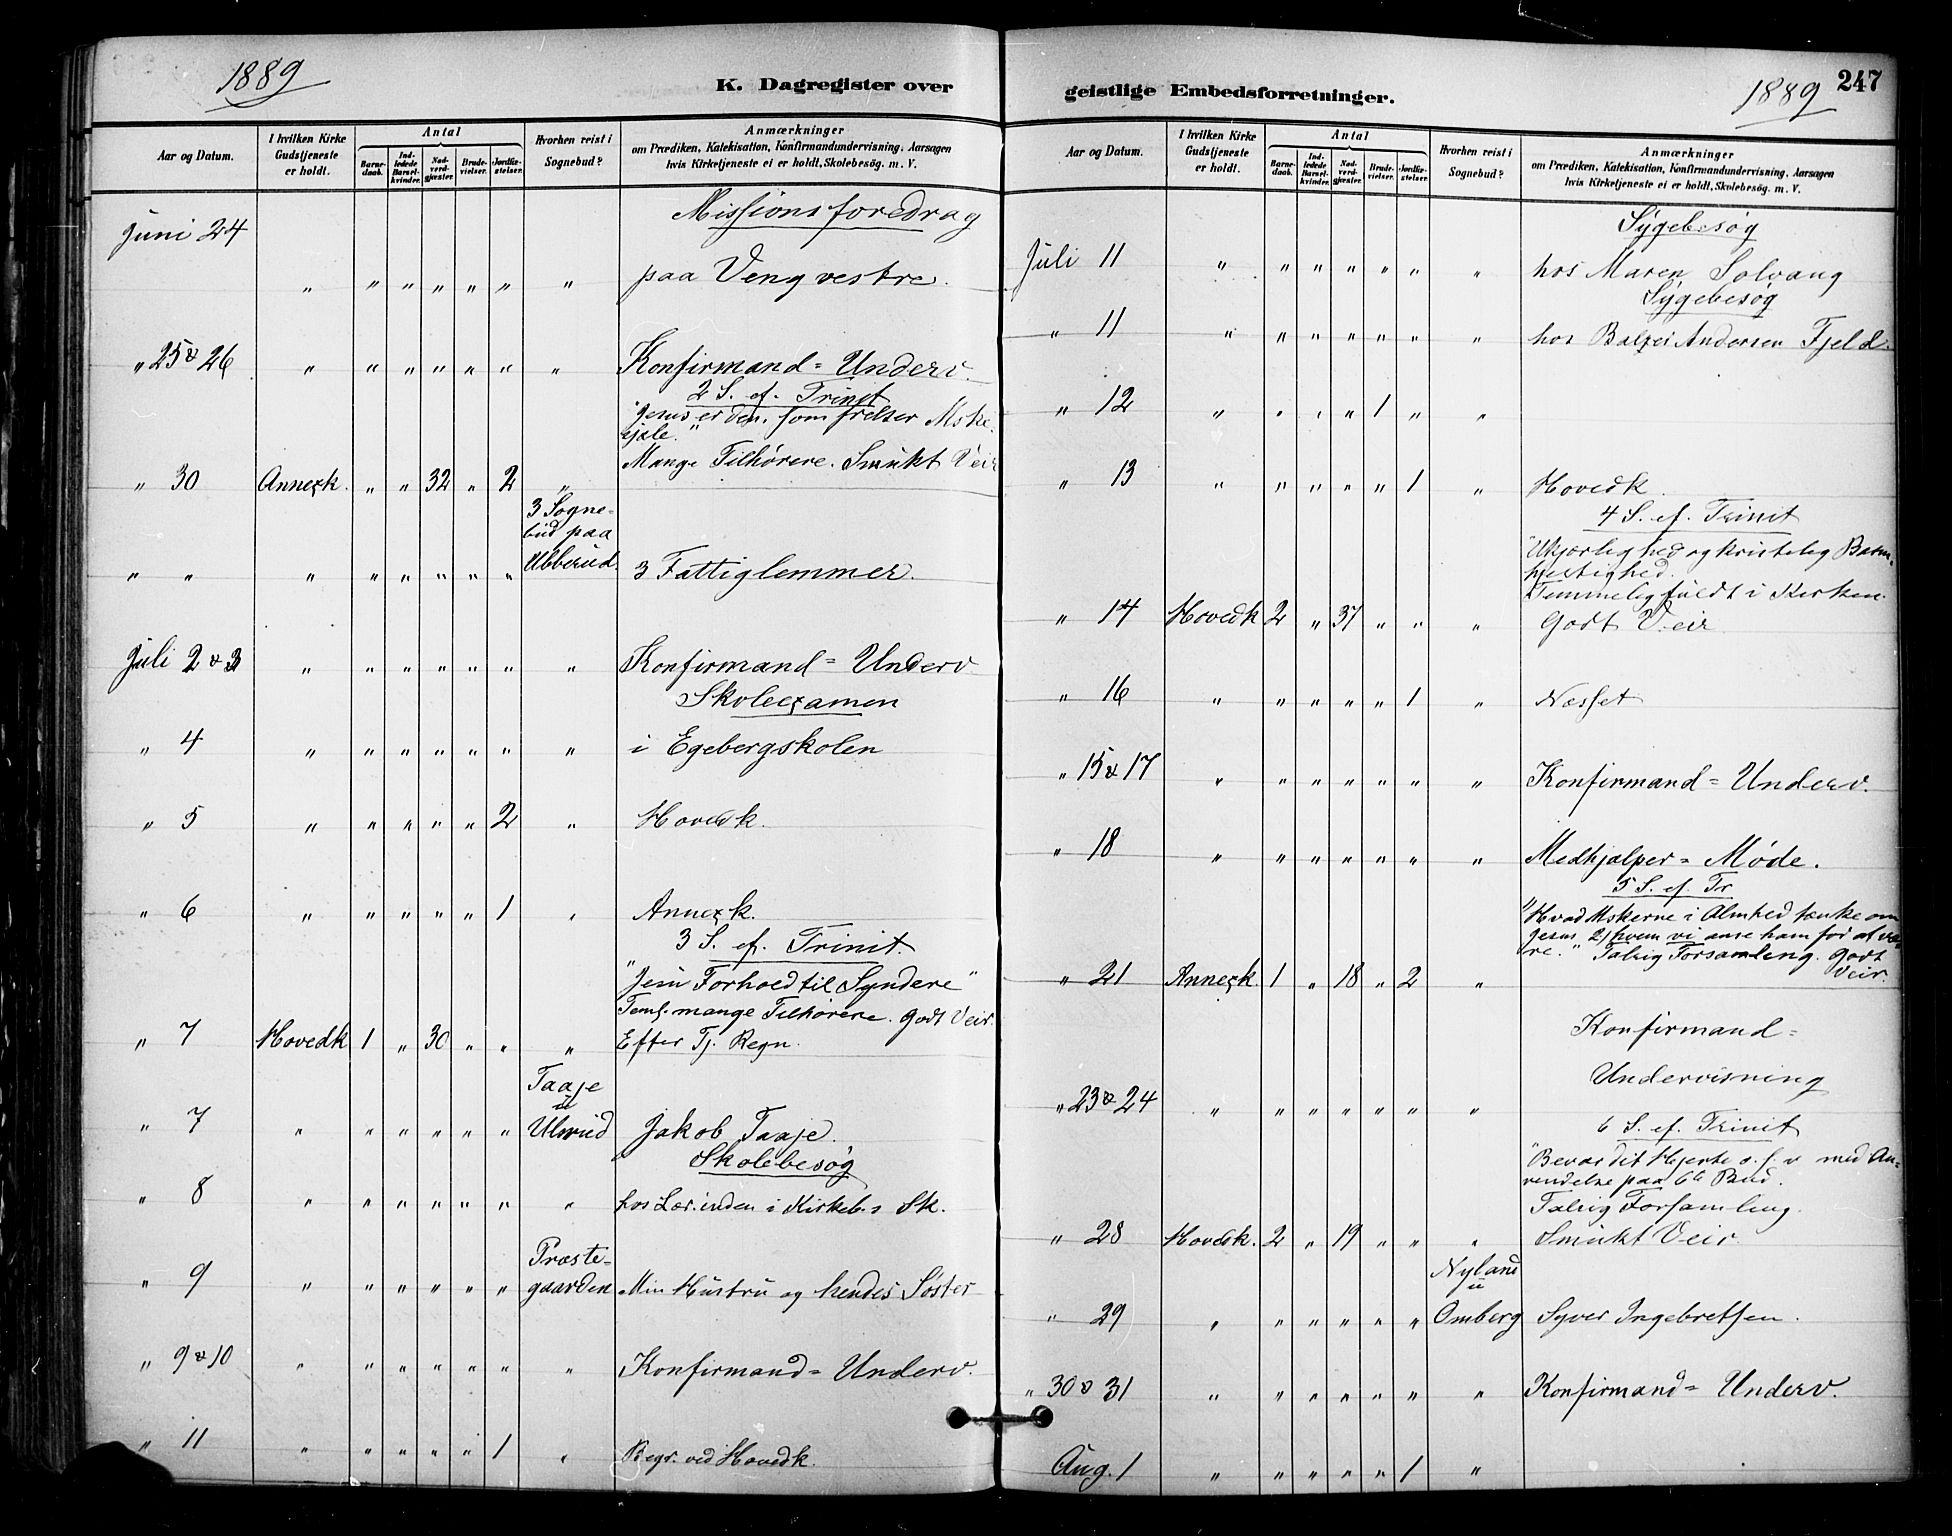 1889
K. Dagregister over
Aar og Datum. I hvilken Kirke Gudstjeneste er holdt. Antal Barnedaab. Indledede Barselkvinder. Nadverdgjæster. Brudevielser. Jordfæstelser. Hvorhen reist i Sognebud? Anmærkninger
om Prædiken, Katekisation, Konfirmandundervisning, Aarsagen
hvis Kirketjeneste ei er holdt, Skolebesøg. m. V.
Missionsforedrag
Juni 24 " " " " " " " paa Veng vestre.
" 25 & 26 " " " " " " " Konfirmand = Underv.
2 S. ef. Trinit
"Jesus er den, som frelser Mske-
sjæle."
Mange Tilhørere. Smukt Veir
" 30 Annexk. " " 32 " 2 "
3 Sogne-
bud paa
" " " " " " " " Ubberud. 3 Fattiglemmer.
Juli 2 & 3 " " " " " " " Konfirmand = Underv
Skoleexamen
" 4 " " " " " " " i Egebergskolen
" 5 " " " " " 2 " Hovedk.
" 6 " " " " " 1 " Annexk.
3 S. ef. Trinit.
"Jesu Forhold til Syndere"
Teml. mange Tilhørere. Godt Veir.
" 7 Hovedk 1 " 30 " " " Efter Tj. Regn.
Taaje
u
" 7 " " " " " " Ulsrud Jakob Taaje.
Skolebesøg
" 8 " " " " " " " hos Lær.inden i Kirkeb.s Sk.
Præste-
" 9 " " " " " " gaarden Min Hustru og hendes Søster
" 9 & 10 " " " " " " " Konfirmand = Underv.
" 11 " " " " " 1 " Begr. ved Hovedk.
geistlige Embedsforretninger.
1889 247
Aar og Datum. I hvilken Kirke Gudstjeneste er holdt. Antal Barnedaab. Indledede Barselkvinder. Nadverdgjæster. Brudevielser. Jordfæstelser. Hvorhen reist i Sognebud? Anmærkninger
om Prædiken, Katekisation, Konfirmandundervisning, Aarsagen
hvis Kirketjeneste ei er holdt, Skolebesøg. m. V.
Sygebesøg
Juli 11 " " " " " " " hos Maren Solvang
Sygebesøg
" 11 " " " " " " " hos Andersen Fjeld.
" 12 " " " " 1 " "
" 13 " " " " " 1 " Hovedk.
4 S. ef. Trinit
"Ukjærlighed og kristelig Barm-
hjertighed.
Temmelig fuldt i Kirken.
" 14 Hovedk 2 " 37 " " " Godt Veir
" 16 " " " " " 1 " Næsset
" 15 & 17 " " " " " " " Konfirmand = Underv.
" 18 " " " " " " " Medhjælper = Møde.
5 S. ef. Tr
"Hvad Mskerne i Almhed tænke om
Jesus 2) hvem vi anse ham for at væ-
re." Talrig Forsamling. Godt
Veir.
" 21 Annexk. 1 " 18 " 2 "
Konfirmand =
Undervisning
" 23 & 24 " " " " " " "
6 S. ef. Trinit
"Bevar dit Hjerte o. s. v med An-
vendelse paa 6te Bud.
Talrig Forsamling.
" 28 Hovedk. 2 " 19 " " " Smukt Veir
Nyland
u
" 29 " " " " " " Omberg Syver Ingebretsen.
" 30 & 31 " " " " " " " Konfirmand = Underv.
Aug. 1 " " " " " 1 "